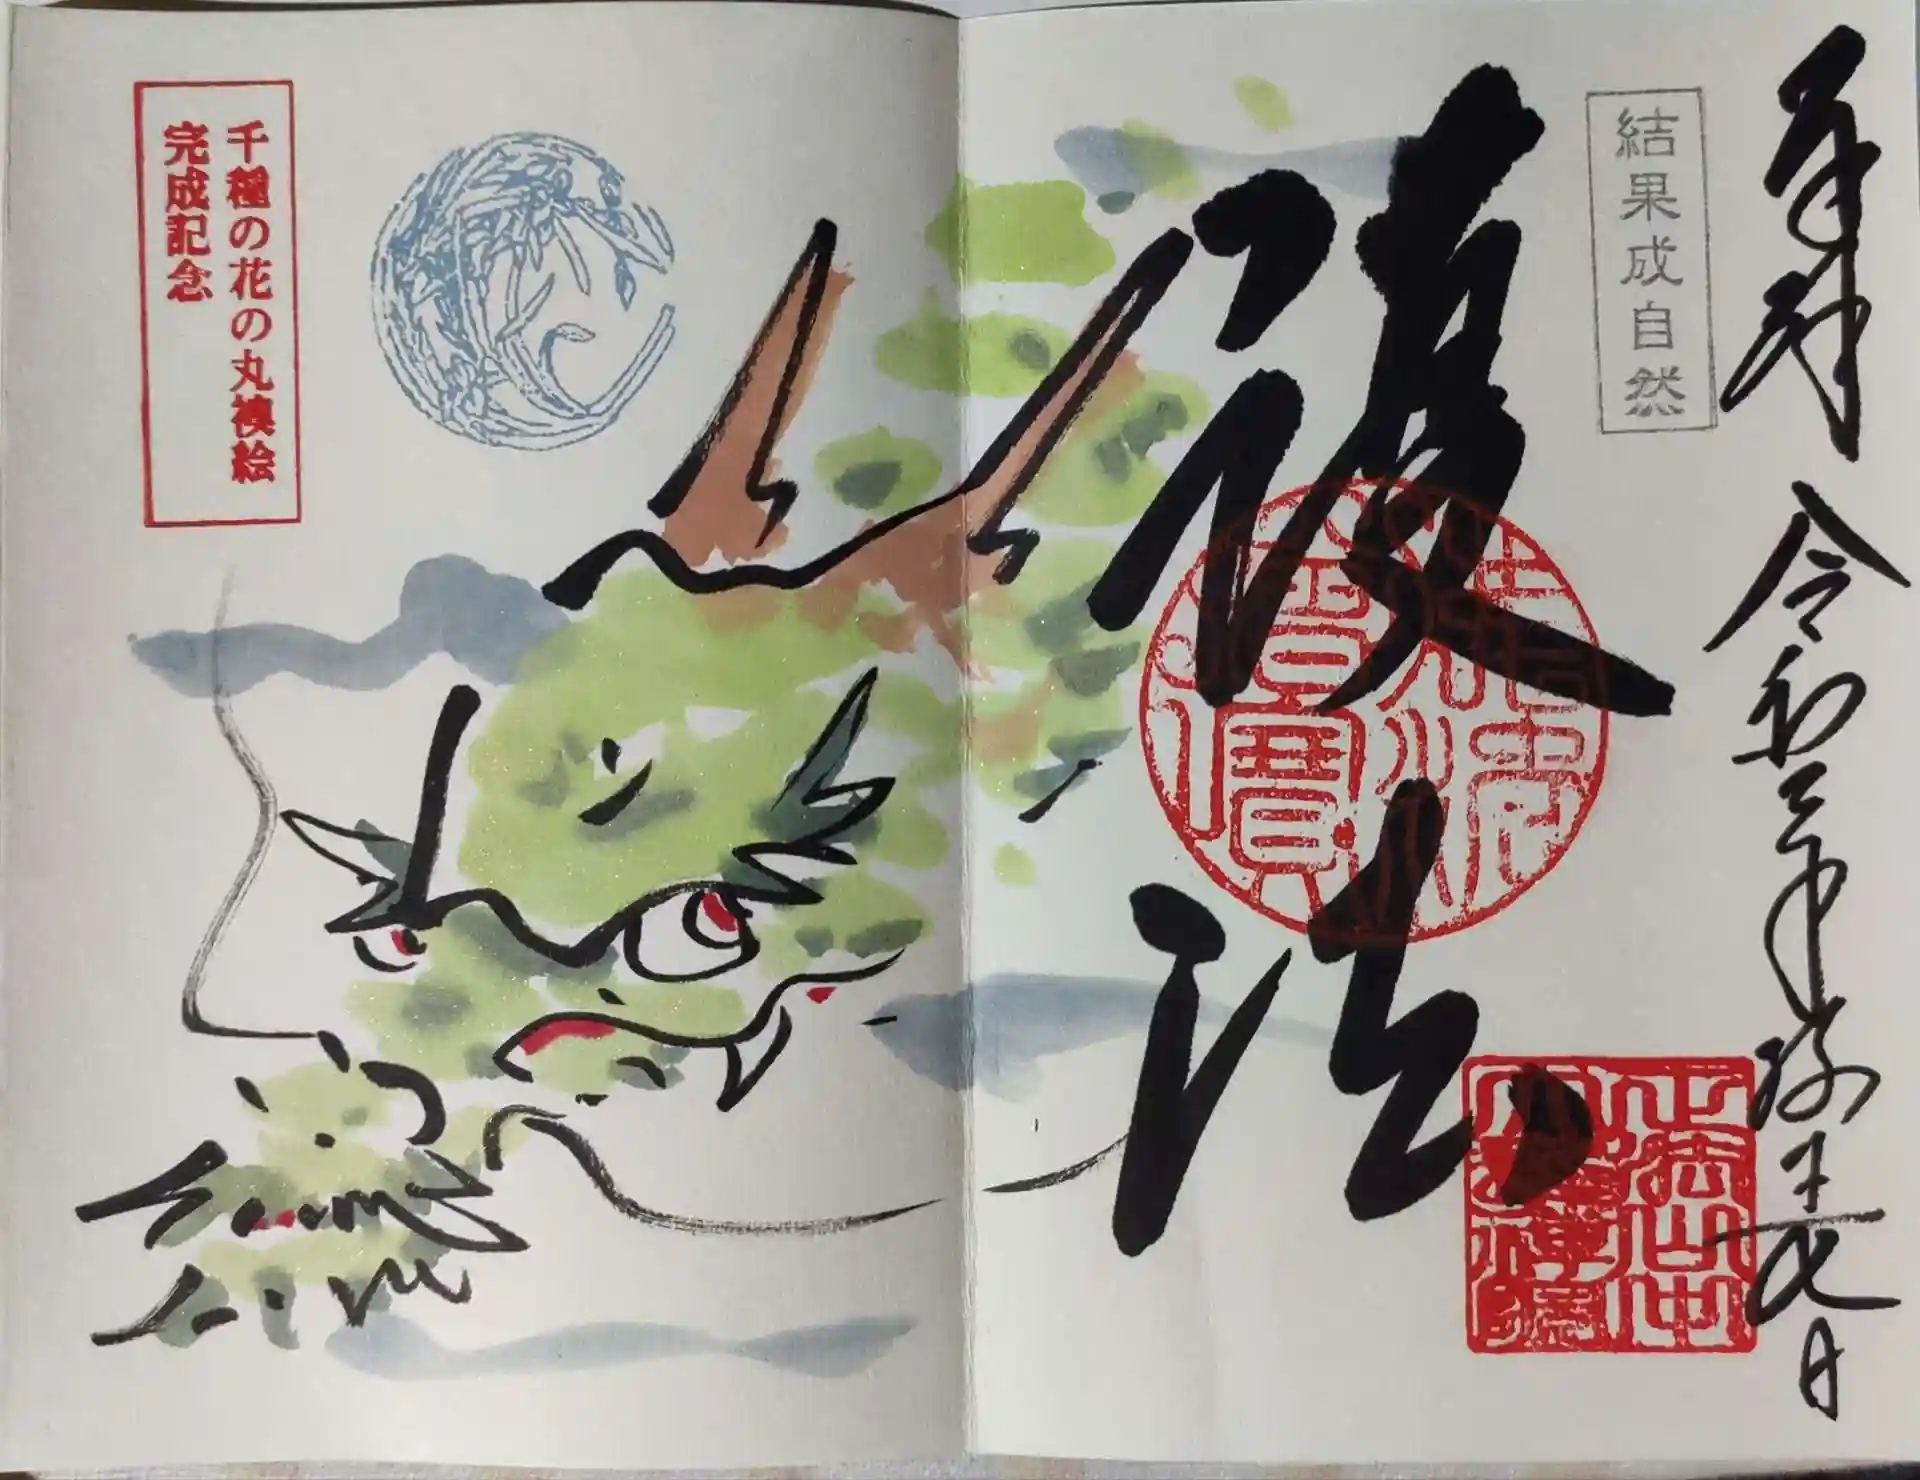 奉拝 令和三年
結果成自然
護法
佛法僧寶
千種の花の丸襖絵
完成記念